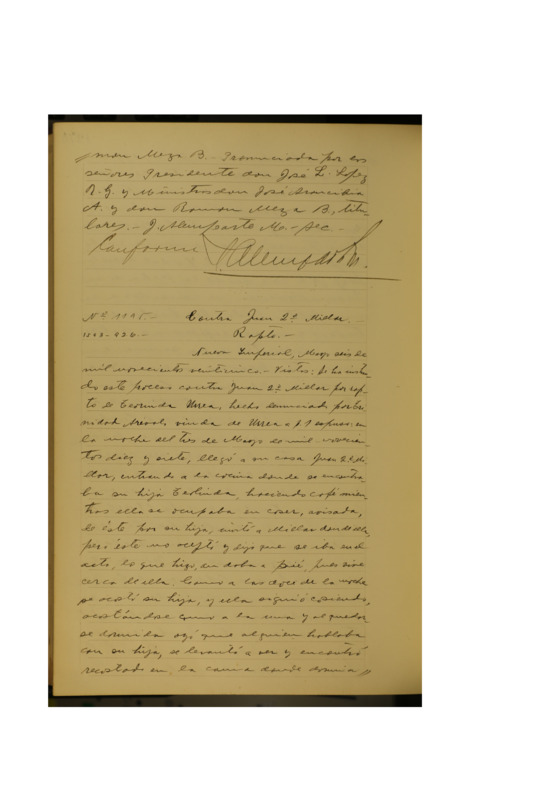 mon Meza B.- Pronunciada por los
señores Presidente don José L. Lopez
R. G. y Ministros don José
A. y don Ramon Meza B, titu-
lares.- J Alemparte M.- Sec.-
Conforme
Contra Juan 2º Millar
Rapto.-
Nueva Imperial, Mayo seis de
mil novecientos veinticinco.- Vistos: Se ha instrui-
do este proceso contra Juan 2º Millar por rap-
to de Teorinda Urrea, hecho denunciado por Tri-
nidad viuda de Urrea a f. 1 expuso: en
la noche del tres de Mayo de mil novecien-
tos diez y siete, llegó a su casa Juan 2º Mi-
llar, entrando a la cocina donde se encontra-
ba su hija haciendo café mien-
tras ella se ocupaba en coser, avisada,
de éste por su hija, invitó a Millar donde ella,
pero éste no aceptó y dijo que se iba en el
acto, lo que hizo, a pié, pues vive
cerca de ella. Como a las doce de la noche
se acostó su hija, y ella siguió cosiendo,
acostándose como a la una y al quedar
se dormida oyó que alguien hablaba
con su hija, se levantó a ver y encontró
recostado en la cama donde dormia